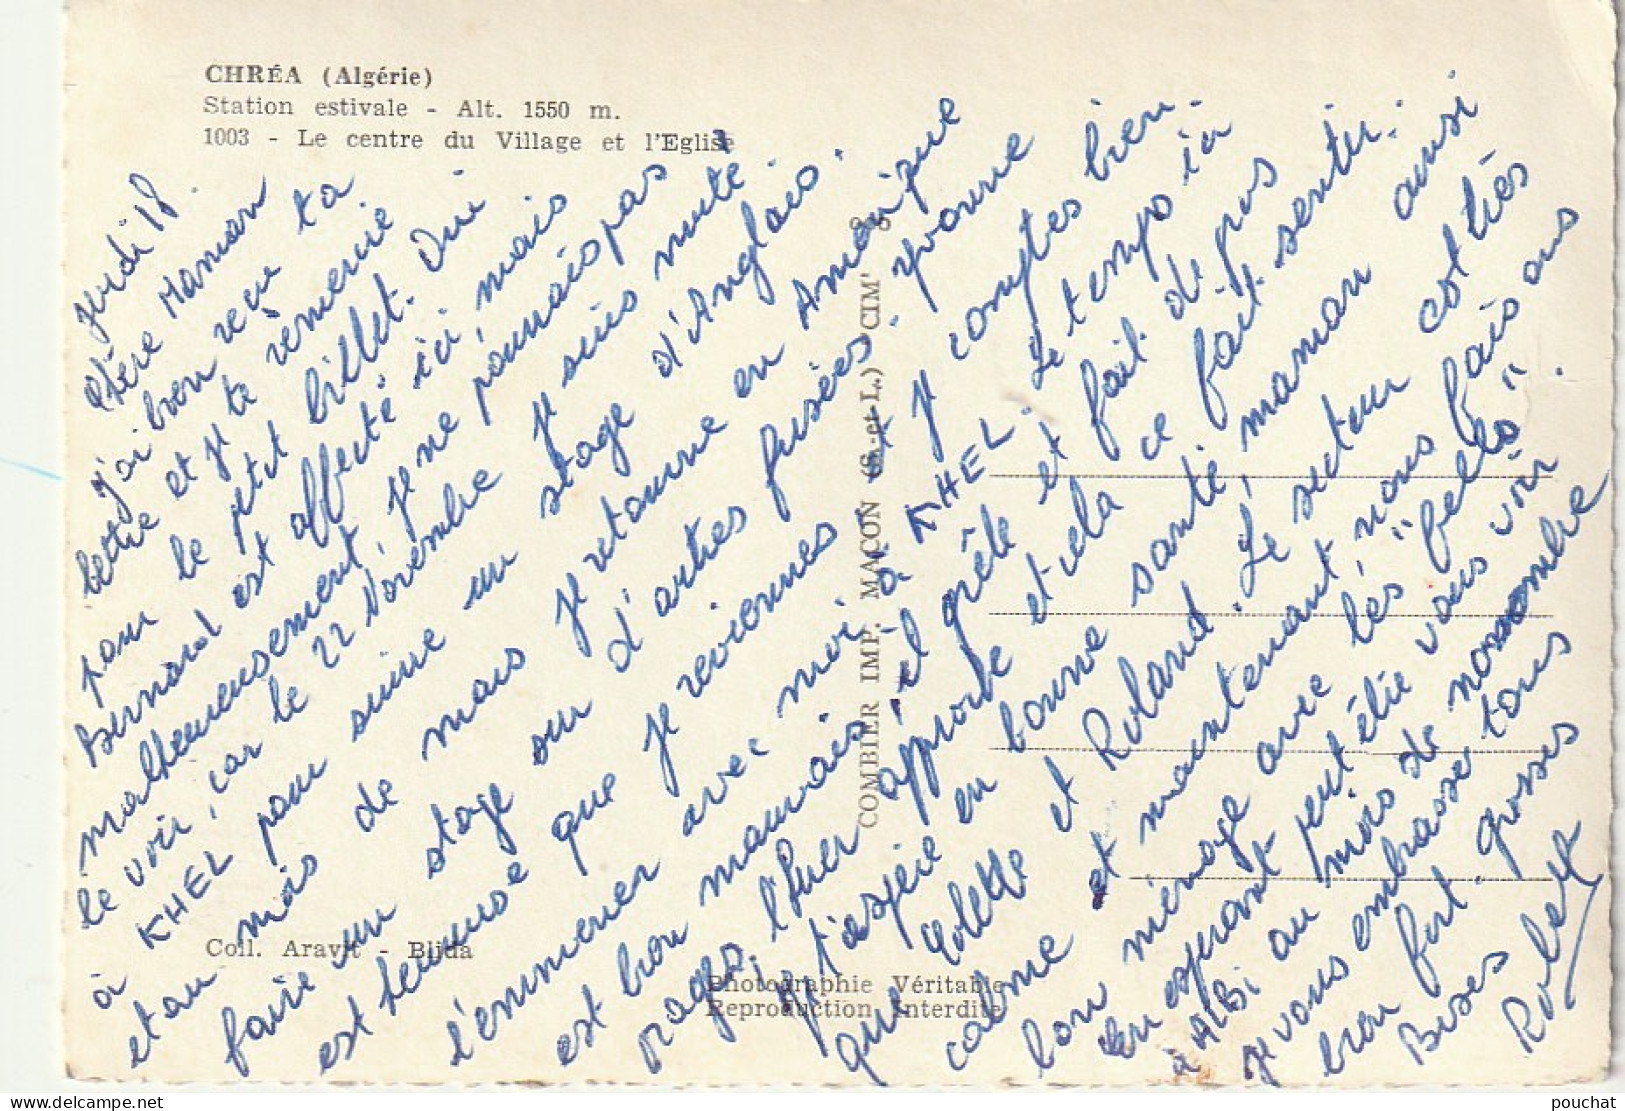 CHRÉA (Algérie)
Station estivale - Alt. 1550 m.
1003 - Le centre du Village et l'Eglise
Jeudi 18.
Chère Maman
J'ai bien reçu ta
lettre et je te remercie
pour le petit billet. Oui
Bernard est affecté ici mais
malheureusement je ne pourrais pas
le voir, car le 22 Novembre je suis muté
à KHEL pour suivre un stage d'Anglais.
et au mois de mars je retourne en Amérique
faire un stage sur d'autres fusées. Yvonne
est heureuse que je reviennes et je comptes bien
l'emmener avec moi à KHEL. Le temps ici
est bien mauvais, il grêle et fait de gros
orages, l'hiver approche et cela ce fait sentir.
J'espère en bonne santé, maman ainsi
que Colette et Roland. Le secteur est très
calme et maintenant nous fais ans
bon ménage avec les "fells".
En espérant peut être vous voir
à ALBI au mois de novembre
Je vous embrasse tous
bien fort. grosses
Bises
Robert
COMBIER IMP. MACON (S.-et-L.) CIM'
Coll. Aravit - Blida
Photographie Véritable
Reproduction Interdite
pouchat